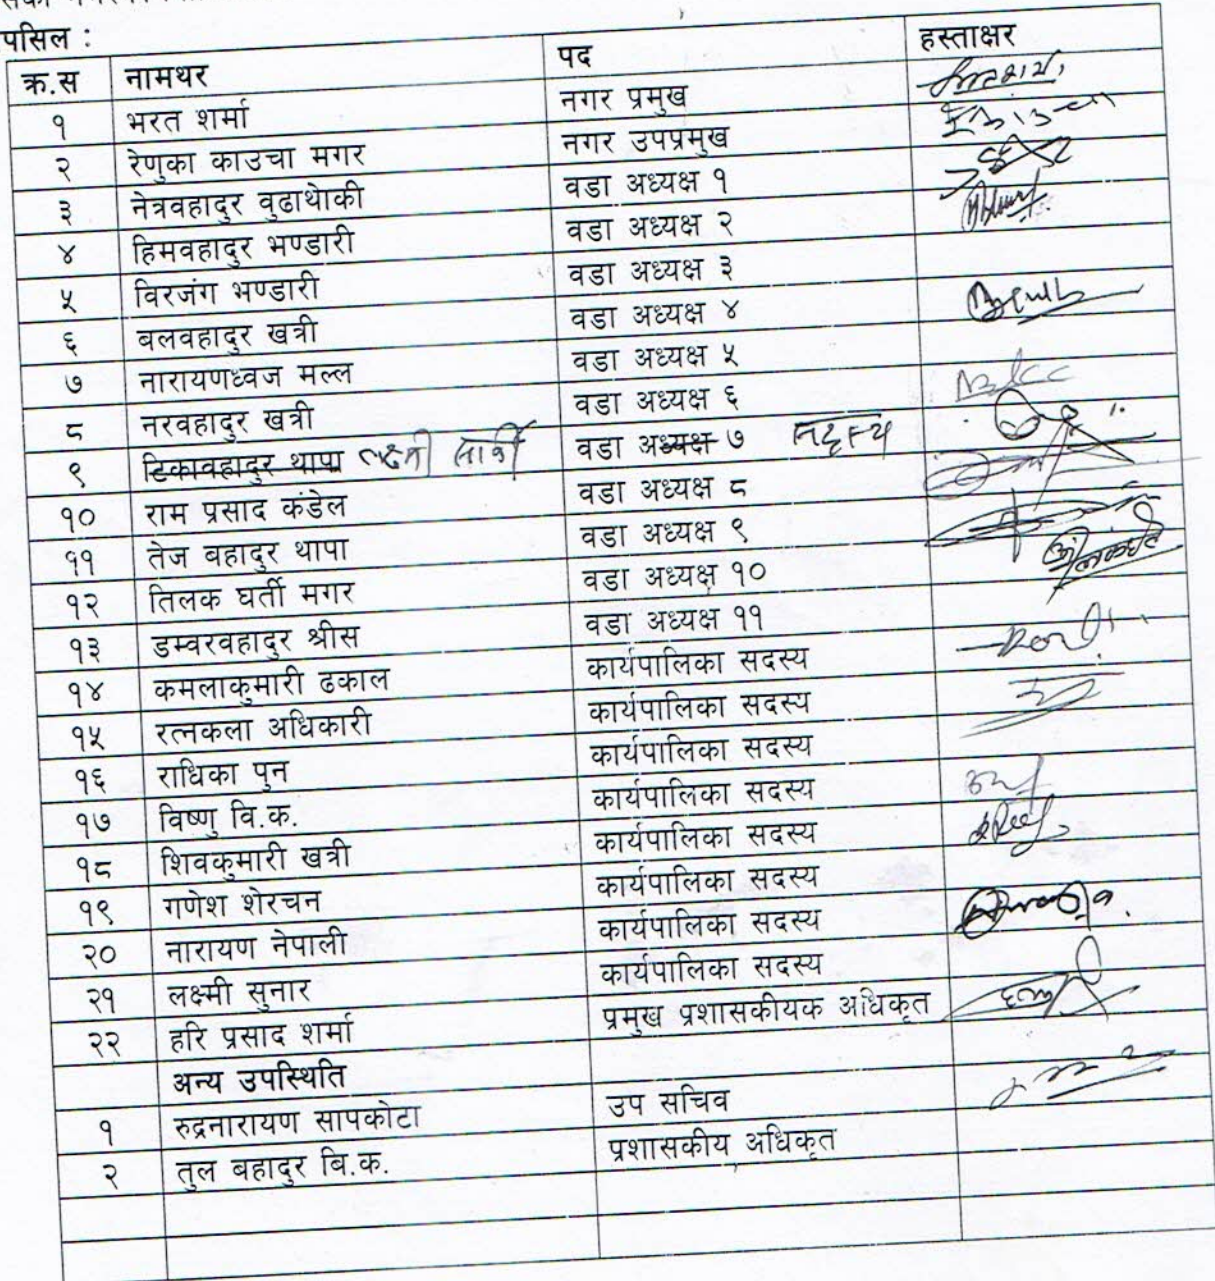 पसिल :
क्र.स नामथर पद हस्ताक्षर
१ भरत शर्मा नगर प्रमुख
२ रेणुका काउचा मगर नगर उपप्रमुख
३ नेत्रवहादुर वुढाथोकी वडा अध्यक्ष १
४ हिमवहादुर भण्डारी वडा अध्यक्ष २
५ विरजंग भण्डारी वडा अध्यक्ष ३
६ बलवहादुर खत्री वडा अध्यक्ष ४
७ नारायणध्वज मल्ल वडा अध्यक्ष ५
८ नरवहादुर खत्री वडा अध्यक्ष ६
९ टिकावहादुर थापा लक्ष्मी सार्की वडा अध्यक्ष ७ सदस्य
१० राम प्रसाद कंडेल वडा अध्यक्ष ८
११ तेज बहादुर थापा वडा अध्यक्ष ९
१२ तिलक घर्ती मगर वडा अध्यक्ष १०
१३ डम्वरवहादुर श्रीस वडा अध्यक्ष ११
१४ कमलाकुमारी ढकाल कार्यपालिका सदस्य
१५ रत्नकला अधिकारी कार्यपालिका सदस्य
१६ राधिका पुन कार्यपालिका सदस्य
१७ विष्णु वि.क. कार्यपालिका सदस्य
१८ शिवकुमारी खत्री कार्यपालिका सदस्य
१९ गणेश शेरचन कार्यपालिका सदस्य
२० नारायण नेपाली कार्यपालिका सदस्य
२१ लक्ष्मी सुनार कार्यपालिका सदस्य
२२ हरि प्रसाद शर्मा प्रमुख प्रशासकीयक अधिकृत
अन्य उपस्थिति
१ रुद्रनारायण सापकोटा उप सचिव
२ तुल बहादुर बि.क. प्रशासकीय अधिकृत